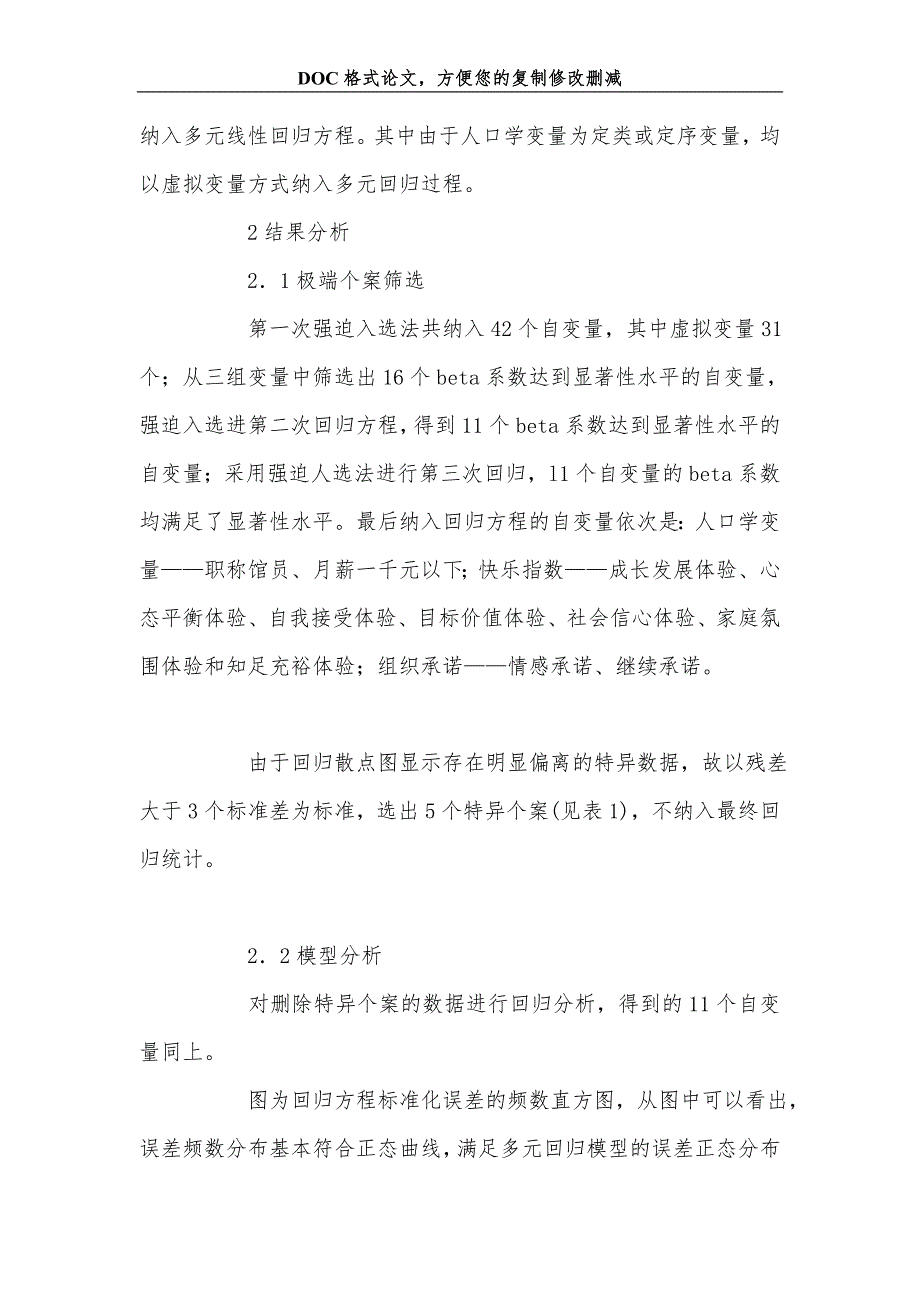 DOC 格式论文，方便您的复制修改删减
纳入多元线性回归方程。其中由于人口学变量为定类或定序变量，均
以虚拟变量方式纳入多元回归过程。
2 结果分析
2．1 极端个案筛选
第一次强迫入选法共纳入 42 个自变量，其中虚拟变量 31
个；从三组变量中筛选出 16 个 beta 系数达到显著性水平的自变量，
强迫入选进第二次回归方程，得到 11 个 beta 系数达到显著性水平的
自变量；采用强迫人选法进行第三次回归，l1 个自变量的 beta 系数
均满足了显著性水平。最后纳入回归方程的自变量依次是：人口学变
量——职称馆员、月薪一千元以下；快乐指数——成长发展体验、心
态平衡体验、自我接受体验、目标价值体验、社会信心体验、家庭氛
围体验和知足充裕体验；组织承诺——情感承诺、继续承诺。
由于回归散点图显示存在明显偏离的特异数据，故以残差
大于 3 个标准差为标准，选出 5 个特异个案(见表 1)，不纳入最终回
归统计。
2．2 模型分析
对删除特异个案的数据进行回归分析，得到的 11 个自变
量同上。
图为回归方程标准化误差的频数直方图，从图中可以看出，
误差频数分布基本符合正态曲线，满足多元回归模型的误差正态分布